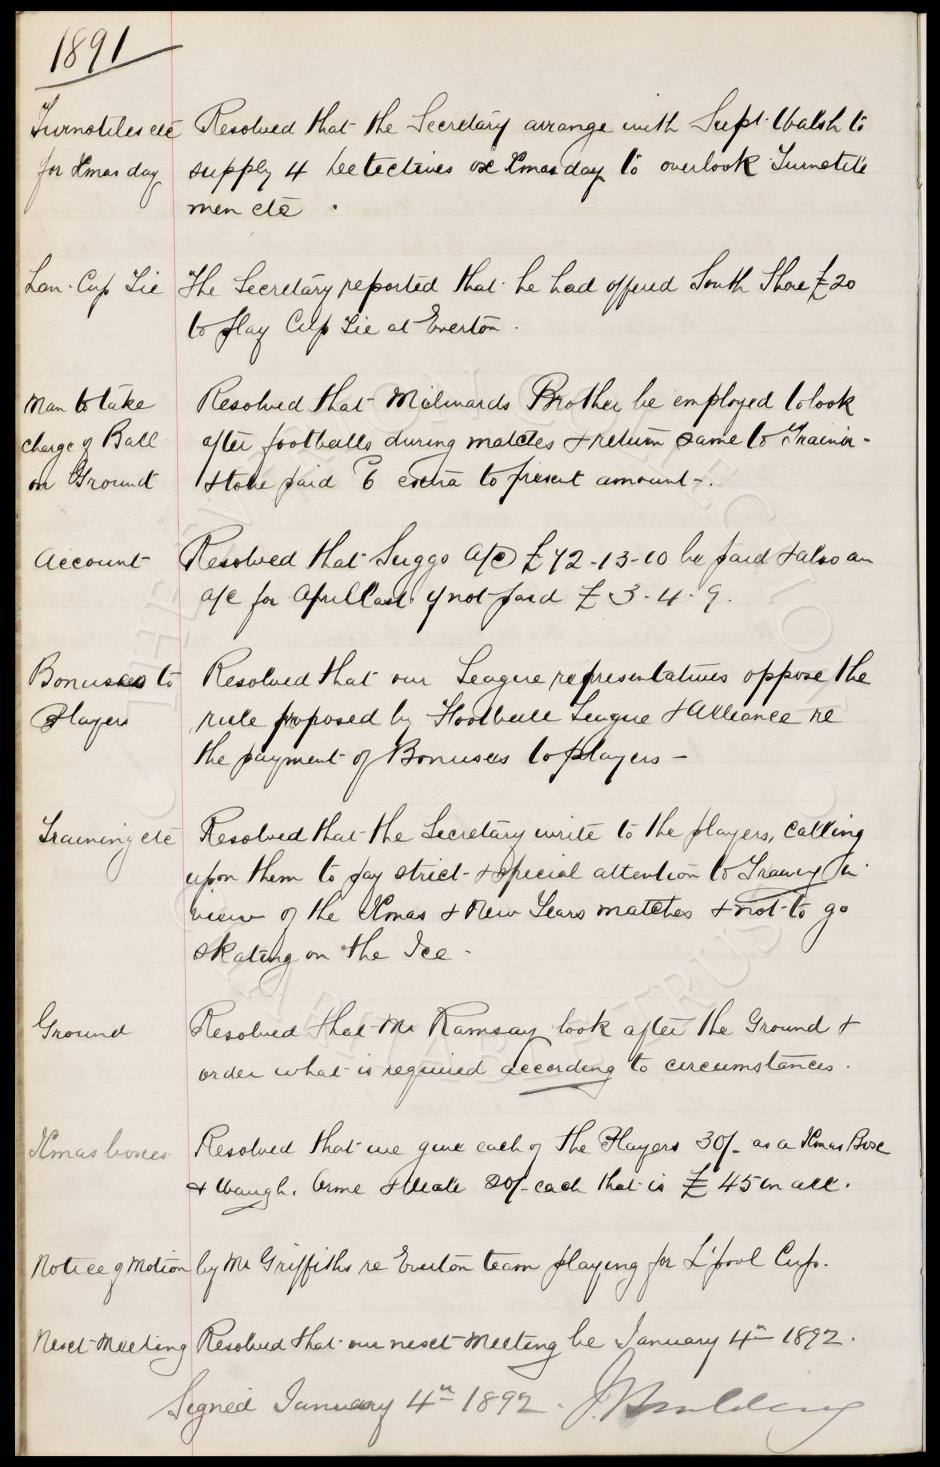 1891
Turnstiles etc Resolved that the Secretary arrange with Supt. Walsh to
for Xmas day supply 4 Detectives on Xmas day to overlook Turnstile
men etc.
Lan. Cup Tie The Secretary reported that he had offered South Shore £20
to play Cup Tie at Everton.
Man to take Resolved that Milwards Brother be employed to look
charge of Ball after footballs during matches & return same to Trainer -
on Ground & to be paid 6 extra to present amount -.
Account Resolved that Suggs a/c £72-13-10 be paid & also an
a/c for April last if not paid £3-4-9.
Bonuses to Resolved that our League representatives oppose the
Players rule proposed by Football League & Alliance re
the payment of Bonuses to players -
Training etc Resolved that the Secretary write to the players, calling
upon them to pay strict & special attention to Training in
view of the Xmas & New Years matches & not to go
skating on the Ice -
Ground Resolved that Mr Ramsay look after the Ground &
order what is required according to circumstances.
Xmas boxes Resolved that we give each of the Players 30/- as a Xmas Box
& Waugh, Orme & 20/- each that is £45 in all.
Notice of Motion by Mr Griffiths re Everton team playing for L'pool Cup.
Next Meeting Resolved that our next meeting be January 4th 1892.
Signed January 4th 1892.